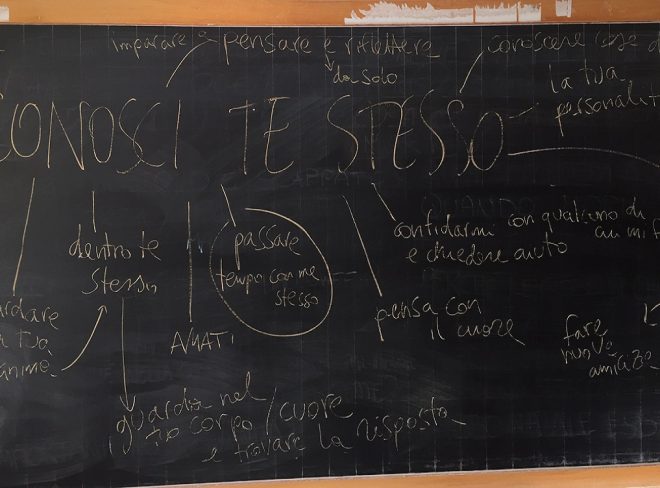 imparare a pensare e riflettere
da solo
conoscere cose
la tua
personalit
CONOSCI TE STESSO
dentro te
stesso
passare
tempo con me
stesso
confidarmi con qualcuno di
cui mi f
e chiedere aiuto
ardare
tua
anima
AMATI
pensa con
il cuore
fare
nuove
amicizie
guarda nel
tuo corpo / cuore
e trovare la risposta